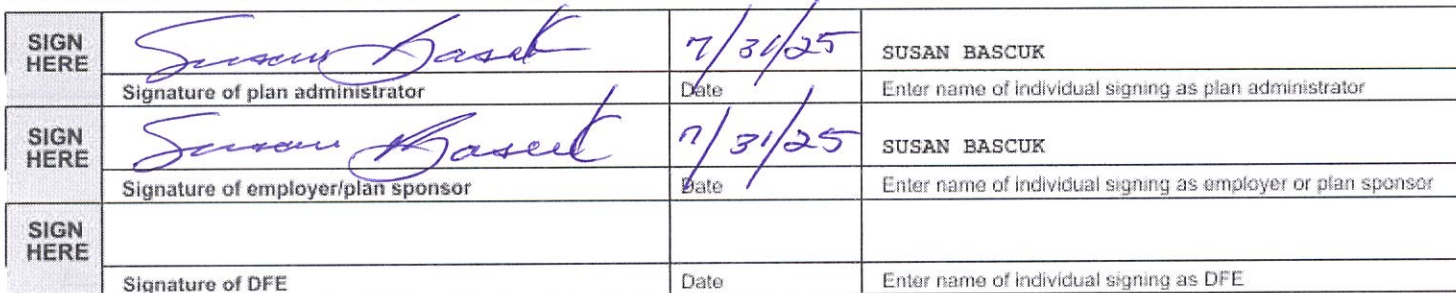 SIGN HERE Susan Bascuk 7/31/25 SUSAN BASCUK
Signature of plan administrator Date Enter name of individual signing as plan administrator
SIGN HERE Susan Bascuk 7/31/25 SUSAN BASCUK
Signature of employer/plan sponsor Date Enter name of individual signing as employer or plan sponsor
SIGN HERE
Signature of DFE Date Enter name of individual signing as DFE